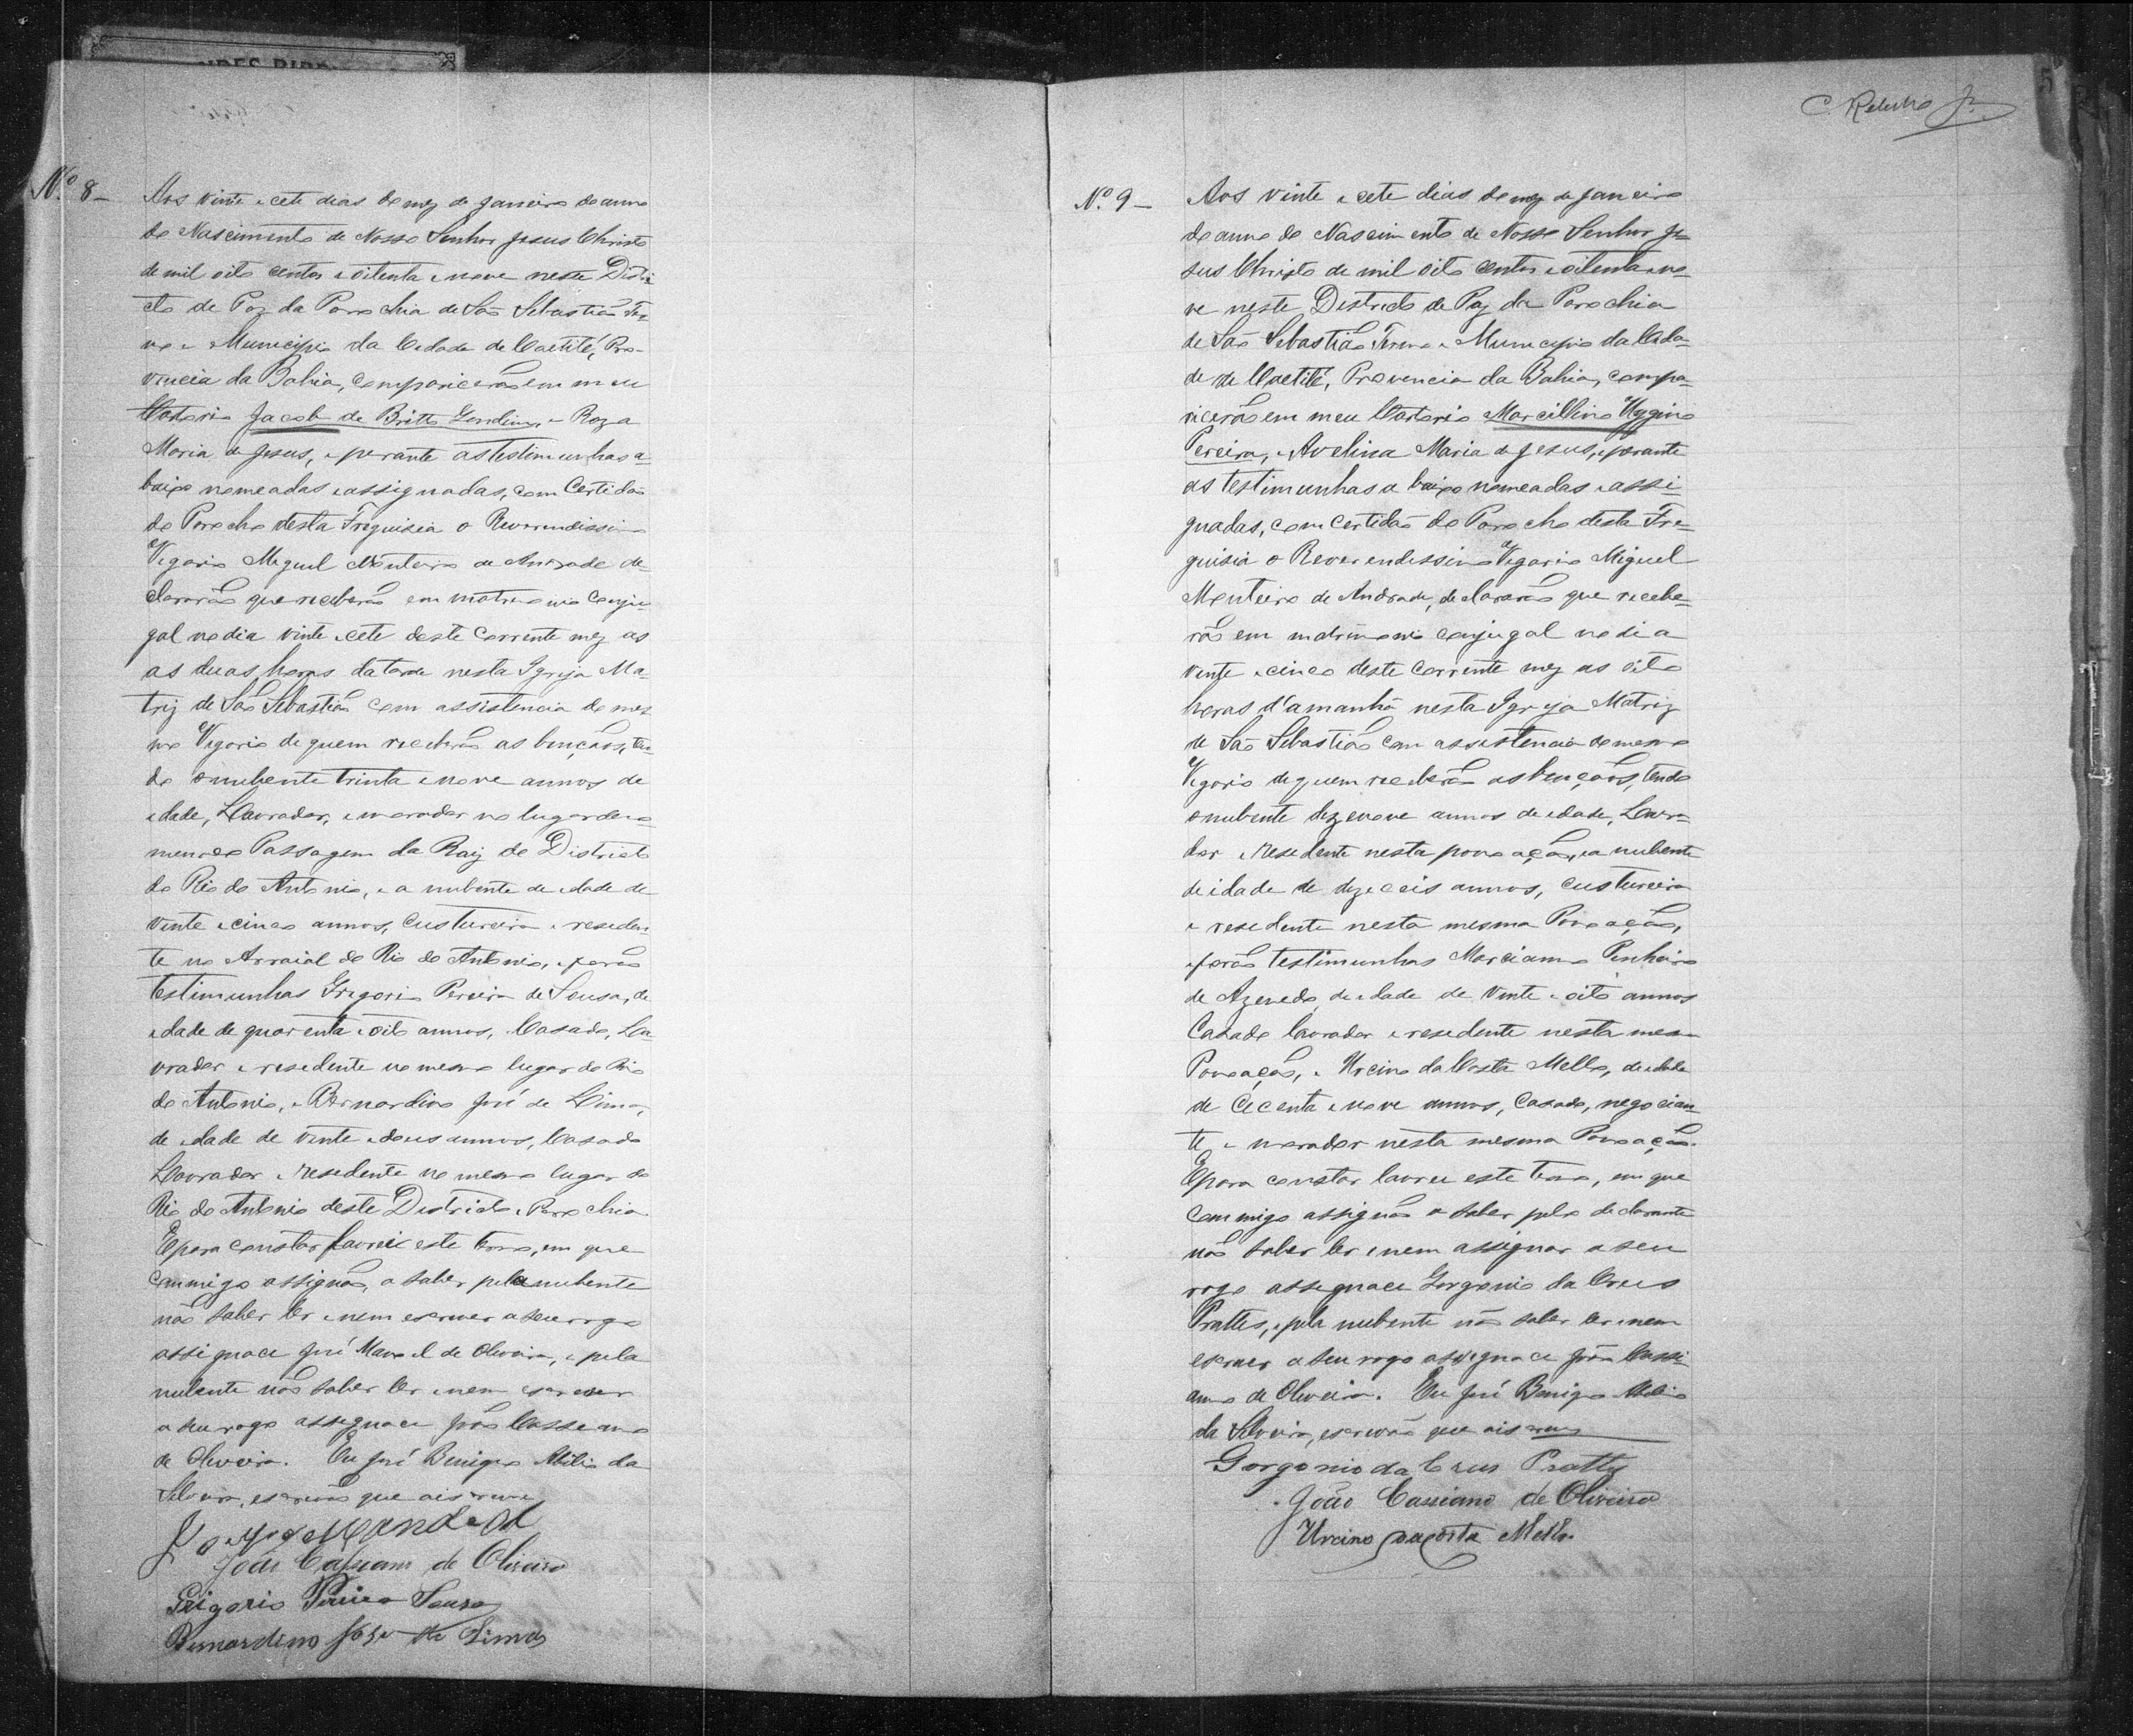 Nº 8 –
Aos vinte e cete dias do mez de Janeiro do anno
do Nascimento de Nosso Senhor Jesus Christo
de mil oito centos e oitenta e nove neste Distri
cto de Paz da Parochia de São Sebastião Ter
mo e Municipio da Cidade de Caetité, Pro-
vincia da Bahia, comparicerão em meu
Cartorio Jacob de Britto Gondim, e Roza
Maria de Jesus, e perante as testimunhas a-
baixo nomeadas e assignadas, com Certidão
do Parocho desta Freguisia o Reverendissimo
Vigario Miguel Monteiro de Andrade de-
clararão que receberão em matrimonio conju
gal no dia vinte e cete deste corrente mez as
as duas horas da tarde nesta Igreja Ma-
triz de São Sebastião com assistencia do mes
mo Vigario de quem receberão as bençãos, ten
do o nubente trinta e nove annos de
edade, Lavrador, e morador no lugar deno
menado Passagem da Raiz do Districto
do Rio do Antonio, e a nubente de edade de
vente e cinco annos, custureira e reseden
te no Arraial do Rio do Antonio, e forão
testimunhas Grigorio Pereira de Sousa, de
edade de quarenta e oito annos, Casado, La
vrador e resedente no mesmo lugar do Rio
do Antonio, e Bernardino José de Lima,
de edade de vente e dous annos, Casado
Lavrador e resedente no mesmo lugar do
Rio do Antonio deste Districto e Parochia.
E para constar lavrei este termo, em que
commigo assignão, a saber pelo nubente
não saber ler e nem escrever a seu rogo
assignace José Manoel de Oliveira, e pela
nubente não saber ler e nem escrever
a seu rogo assegnace João Casseano
de Oliveira. Eu José Benigno Abilio da
Silveira, escrivão que aiscrevi
João Cassiano de Oliveira
Grigorio Pereira Souza
Bernardino José de Lima
C. Rebelho Jr.
5
Nº 9 –
Aos vinte e cete dias do mez de Janeiro
do anno do Nascimento de Nosso Senhor Je-
sus Christo de mil oito centos e oitenta e no-
ve neste Destricto de Paz da Parochia
de São Sebastião Termo e Municipio da Cida-
de de Caetité, Provencia da Bahia, compa-
ricerão em meu Cartorio Marcillino Uggino
Pereira, e Avelina Maria de Jesus, e perante
as testimunhas a baixo nomeadas e assi-
gnadas, com certidão do Parocho desta Fre-
guisia o Reverendessimo Vegario Miguel
Monteiro de Andrade, declararão que recebe-
rão em matrimonio conjugal no dia
vente e cinco deste corrente mez as oito
horas d'amanhã nesta Igreja Matriz
de São Sebastião com assistencia do mesmo
Vegario de quem receberão as bençãos, tendo
o nubente dezenove annos de edade, Lavra-
dor e resedente nesta povoação, e a nubente
de idade de dezeceis annos, custureira
e resedente nesta mesma Povoação,
e forão testimunhas Marciano Penheiro
de Azevedo, de edade de vinte e oito annos
Casado lavrador e resedente nesta mesma
Povoação, e Urcino da Costa Mello, de edade
de Cecenta e nove annos, Casado, negocian
te, e morador nesta mesma Povoação.
E para constar lavrei este termo, em que
commigo assignão a saber pelo declarante
não saber ler e nem assignar a seu
rogo assegnace Gorgonio da Crus
Prattes, e pela nubente não saber ler e nem
escrever a seu rogo assegnace João Cassi-
ano de Oliveira. Eu José Benigno Abilio
da Silveira, escrivão que aiscrevy
Gorgonio da Crus Prattes
João Cassiano de Oliveira
Urcino da Costa Mello